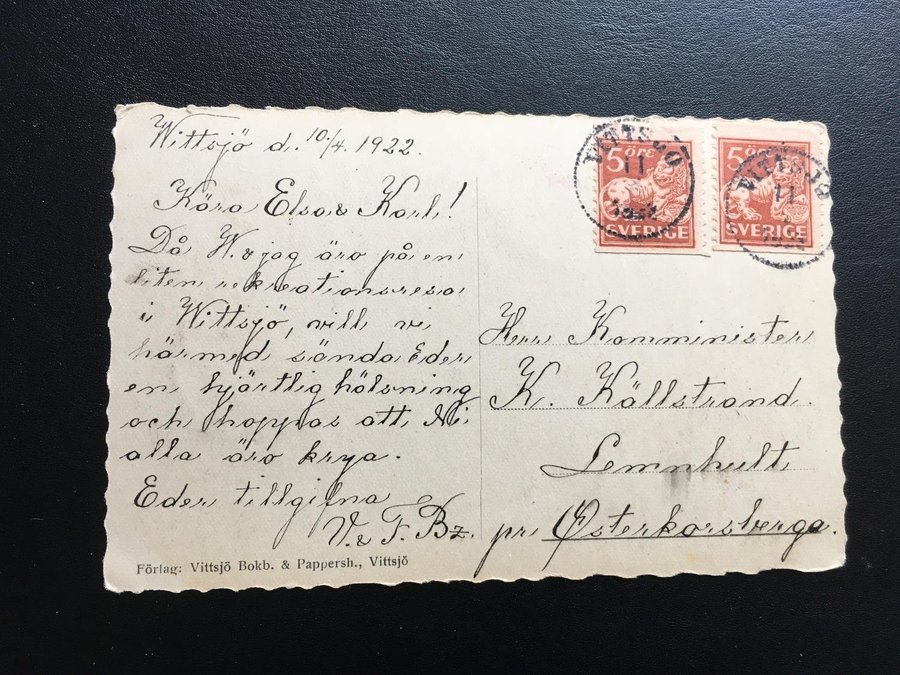 Wittsjö d. 10/4. 1922.
Kära Elsa & Karl!
Då W. & jag äro på en
liten rekreationsresa
i Wittsjö, vill vi
härmed sända Eder
en hjärtlig hälsning
och hoppas att Ni
alla äro krya.
Eder tillgifna
V. & F. Bz.
Förlag: Vittsjö Bokb. & Pappersh., Vittsjö
5 öre
SVERIGE
5 öre
SVERIGE
VITTSJÖ
11
VITTSJÖ
11
Herr Komminister
K. Källstrand.
Lemnhult
pr Österkorsberga.